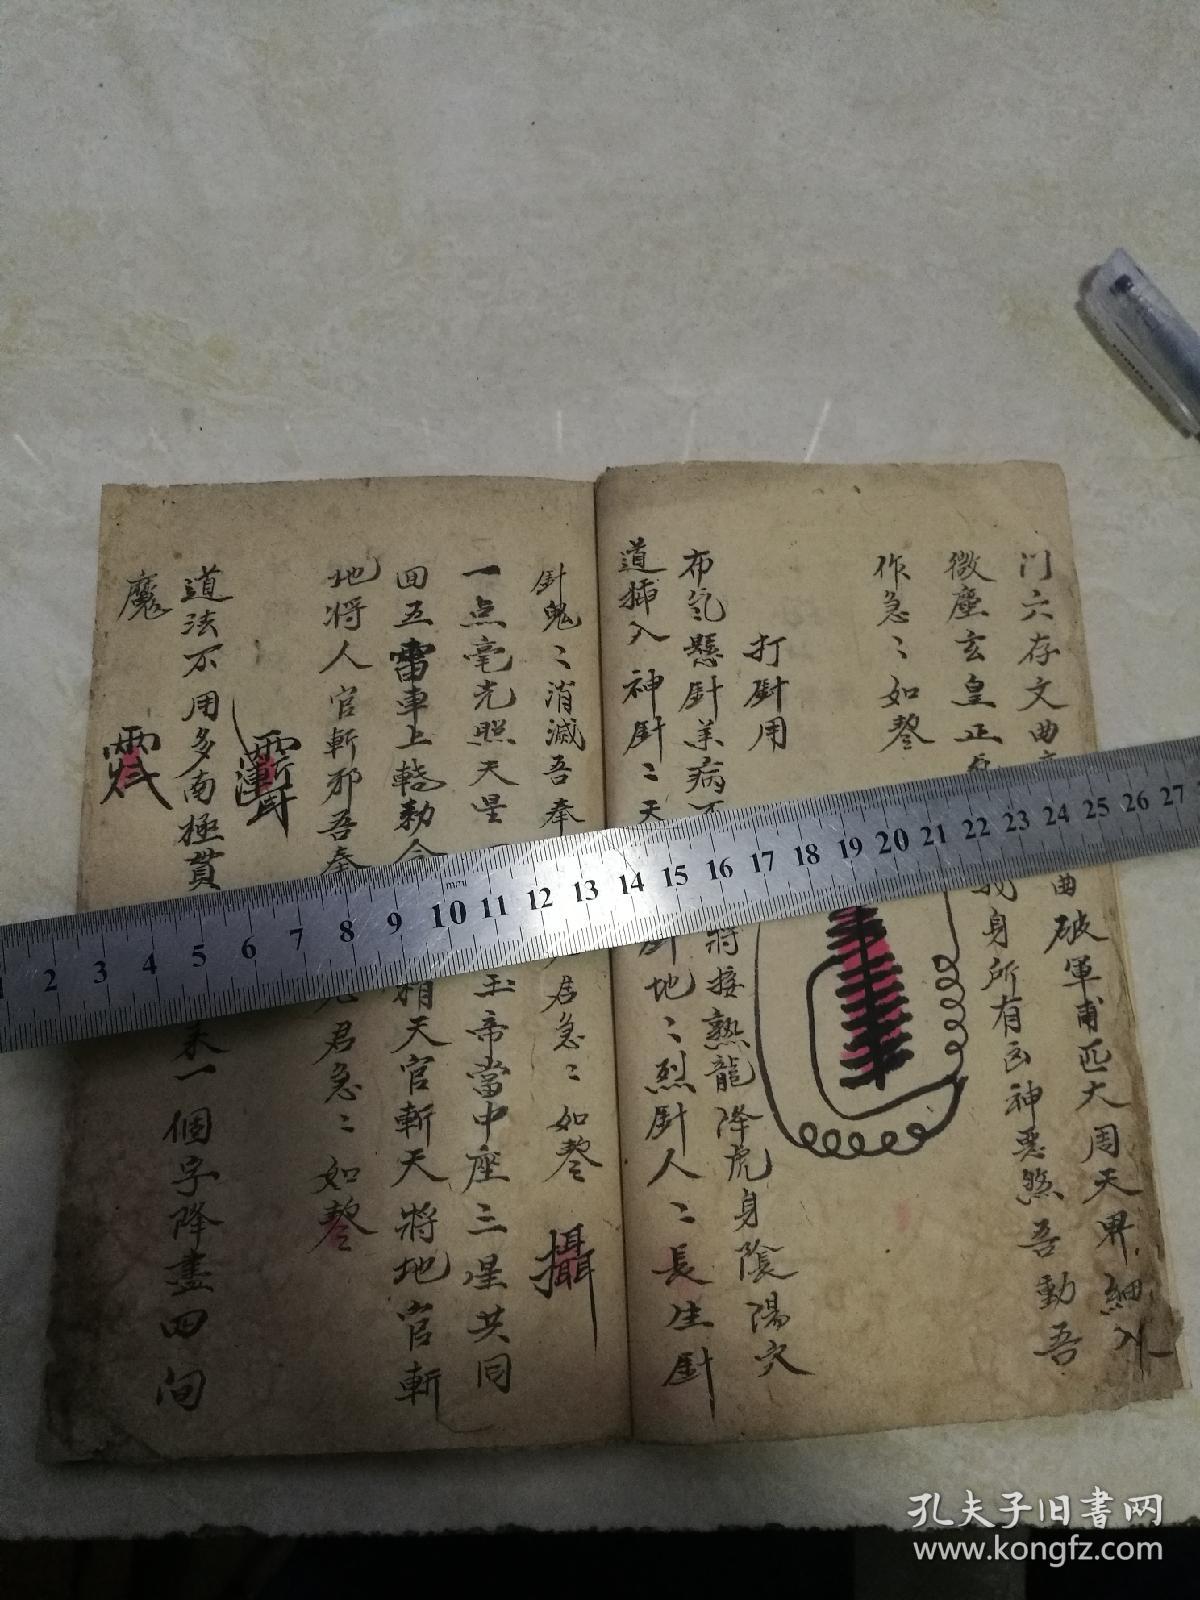 门六存文曲
曲破軍甫匹大周天界細入
微塵玄皇正
我身所有凶神惡煞吾動吾
作急〻如
打針用
布氣懸針業病
將接熟龍降虎身陰陽穴
道插入神針〻天
針地〻烈針人〻長生針
針鬼〻消滅吾奉
君急〻如
攝
一点毫光照天星
玉帝當中座三星共同
回五雷車上
勅令
精天官斬天將地官斬
地將人官斬邪吾奉
老君急〻如
道法不用多南極貫
來一個字降盡四间
魔
1 2 3 4 5 6 7 8 9 10 11 12 13 14 15 16 17 18 19 20 21 22 23 24 25 26 27
孔夫子旧书网
www.kongfz.com